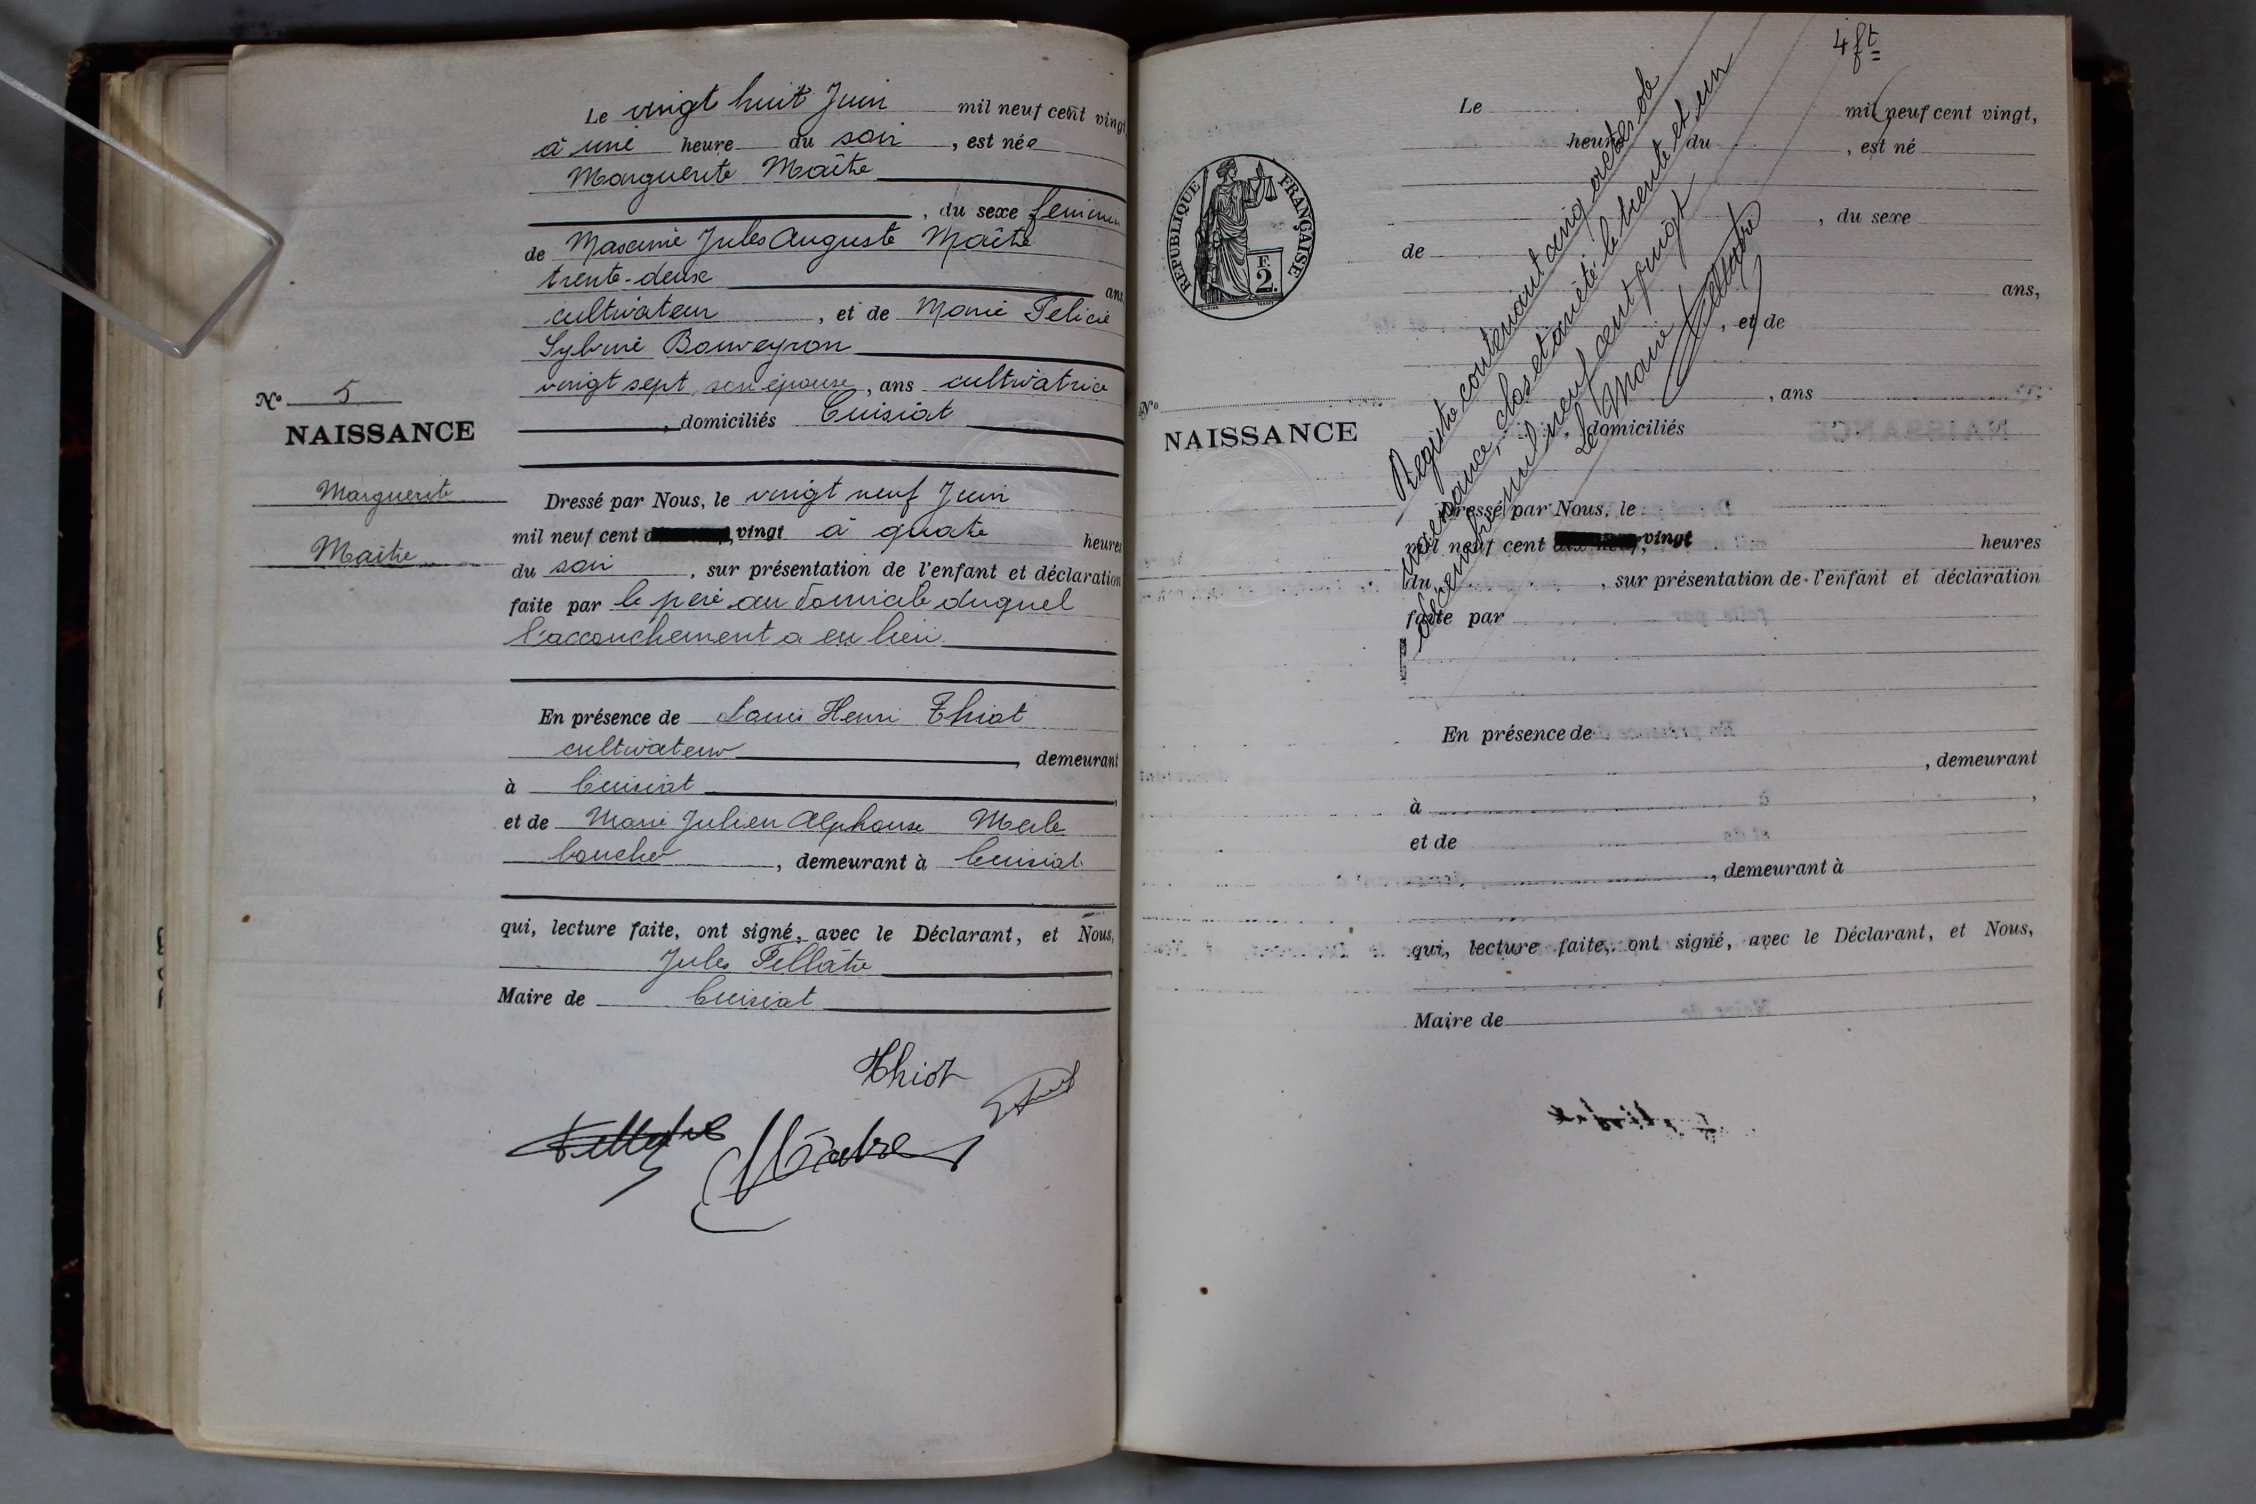 Le vingt huit Juin mil neuf cent vingt
à une heure du soir, est née
Marguerite Maître
, du sexe feminin
de Maxime Jules Auguste Maître
trente-deux ans,
cultivateur, et de Marie Felicie
Sylvine Bouveyron
vingt sept son épouse, ans cultivatrice
, domiciliés Cuisiat
No 5
NAISSANCE
Marguerite
Maître
Dressé par Nous, le vingt neuf Juin
mil neuf cent vingt à quatre heures
du soir, sur présentation de l'enfant et déclaration
faite par le père au domicile duquel
l'accouchement a eu lieu
En présence de Louis Henri Thiot
cultivateur, demeurant
à Cuisiat,
et de Marie Julien Alphonse Merle
boucher, demeurant à Cuisiat
qui, lecture faite, ont signé, avec le Déclarant, et Nous,
Jules Pellâtre
Maire de Cuisiat
Thiot
Maître
4 ft
Le mil neuf cent vingt,
heure du, est né
, du sexe
de
ans,
, et de
, ans
, domiciliés
REPUBLIQUE FRANÇAISE
F.
2.
No
NAISSANCE
Registre contenant cinq actes de
naissance, clos et arrêté le trente et un
décembre mil neuf cent vingt
Le Maire
Dressé par Nous, le
mil neuf cent vingt heures
du, sur présentation de l'enfant et déclaration
faite par
En présence de
, demeurant
à,
et de
, demeurant à
qui, lecture faite, ont signé, avec le Déclarant, et Nous,
Maire de